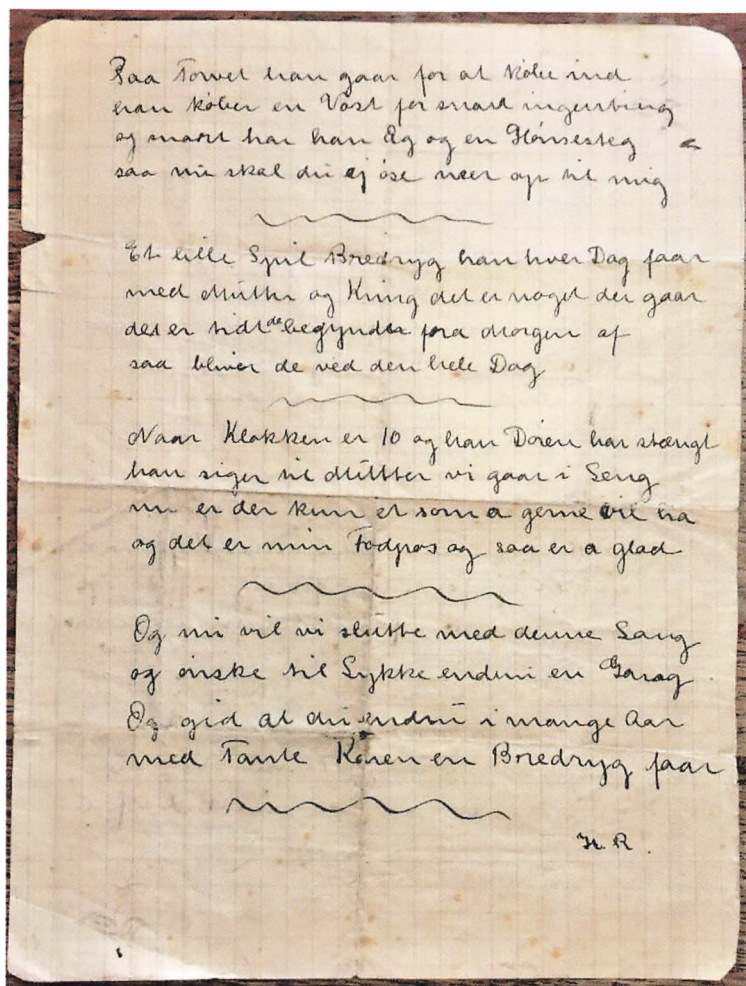 Paa Torvet han gaar for at købe ind
han køber en Vost for snart ingenting
og snart har han Æg og en Hønsesteg
saa nu skal du ej øse mer op til mig
Et lille Spil Bredryg han hver Dag faar
med Mutter og Kning det er noget der gaar
det er tidt de begynder fra Morgen af
saa bliver de ved den hele Dag
Naar Klokken er 10 og han Døren har stængt
han siger til Mutter vi gaar i Seng
nu er der kun et som a gerne vil ha
og det er min Fodpos og saa er a glad
Og nu vil vi slutte med denne Sang
og ønske til Lykke endnu en Gang
Og gid at du endnu i mange Aar
med Tante Karen en Bredryg faar
H. R.